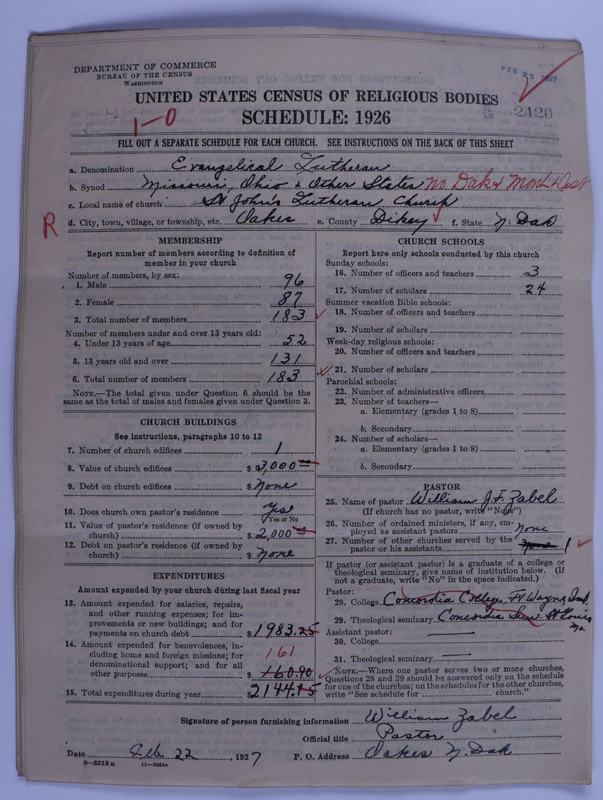 DEPARTMENT OF COMMERCE
BUREAU OF THE CENSUS
WASHINGTON
FEB 25 1927
UNITED STATES CENSUS OF RELIGIOUS BODIES
1-0
SCHEDULE: 1926
2420
FILL OUT A SEPARATE SCHEDULE FOR EACH CHURCH. SEE INSTRUCTIONS ON THE BACK OF THIS SHEET
a. Denomination Evangelical Lutheran
b. Synod Missouri, Ohio & Other States No. Dak & Mont Dist
c. Local name of church St John's Lutheran Church
R d. City, town, village, or township, etc. Oakes e. County Dikey f. State N. Dak
MEMBERSHIP
Report number of members according to definition of member in your church
Number of members, by sex:
1. Male 96
2. Female 87
3. Total number of members 183
Number of members under and over 13 years old:
4. Under 13 years of age 52
5. 13 years old and over 131
6. Total number of members 183
NOTE.—The total given under Question 6 should be the
same as the total of males and females given under Question 3.
CHURCH BUILDINGS
See instructions, paragraphs 10 to 12
7. Number of church edifices 1
8. Value of church edifices $ 3,000
9. Debt on church edifices $ None
10. Does church own pastor's residence Yes
Yes or No
11. Value of pastor's residence (if owned by
church) $ 2,000
12. Debt on pastor's residence (if owned by
church) $ None
EXPENDITURES
Amount expended by your church during last fiscal year
13. Amount expended for salaries, repairs,
and other running expenses; for im-
provements or new buildings; and for
payments on church debt $ 1983.25
14. Amount expended for benevolences, in-
cluding home and foreign missions; for
denominational support; and for all
other purposes $ 160.90
161
15. Total expenditures during year $ 2144.15
CHURCH SCHOOLS
Report here only schools conducted by this church
Sunday schools:
16. Number of officers and teachers 3
17. Number of scholars 24
Summer vacation Bible schools:
18. Number of officers and teachers
19. Number of scholars
Week-day religious schools:
20. Number of officers and teachers
21. Number of scholars
Parochial schools:
22. Number of administrative officers
23. Number of teachers—
a. Elementary (grades 1 to 8)
b. Secondary
24. Number of scholars—
a. Elementary (grades 1 to 8)
b. Secondary
PASTOR
25. Name of pastor William J. F. Zabel
(If church has no pastor, write "None")
26. Number of ordained ministers, if any, em-
ployed as assistant pastors None
27. Number of other churches served by the
pastor or his assistants None 1
If pastor (or assistant pastor) is a graduate of a college or
theological seminary, give name of institution below. (If
not a graduate, write "No" in the space indicated.)
Pastor:
28. College Concordia College, Ft Wayne, Ind.
29. Theological seminary Concordia Sem. St Louis Mo.
Assistant pastor:
30. College
31. Theological seminary
NOTE.—Where one pastor serves two or more churches,
Questions 28 and 29 should be answered only on the schedule
for one of the churches; on the schedules for the other churches,
write "See schedule for church."
Signature of person furnishing information William Zabel
Official title Pastor
Date Feb. 22, 1927 P. O. Address Oakes N Dak
8-5518a 11-9054